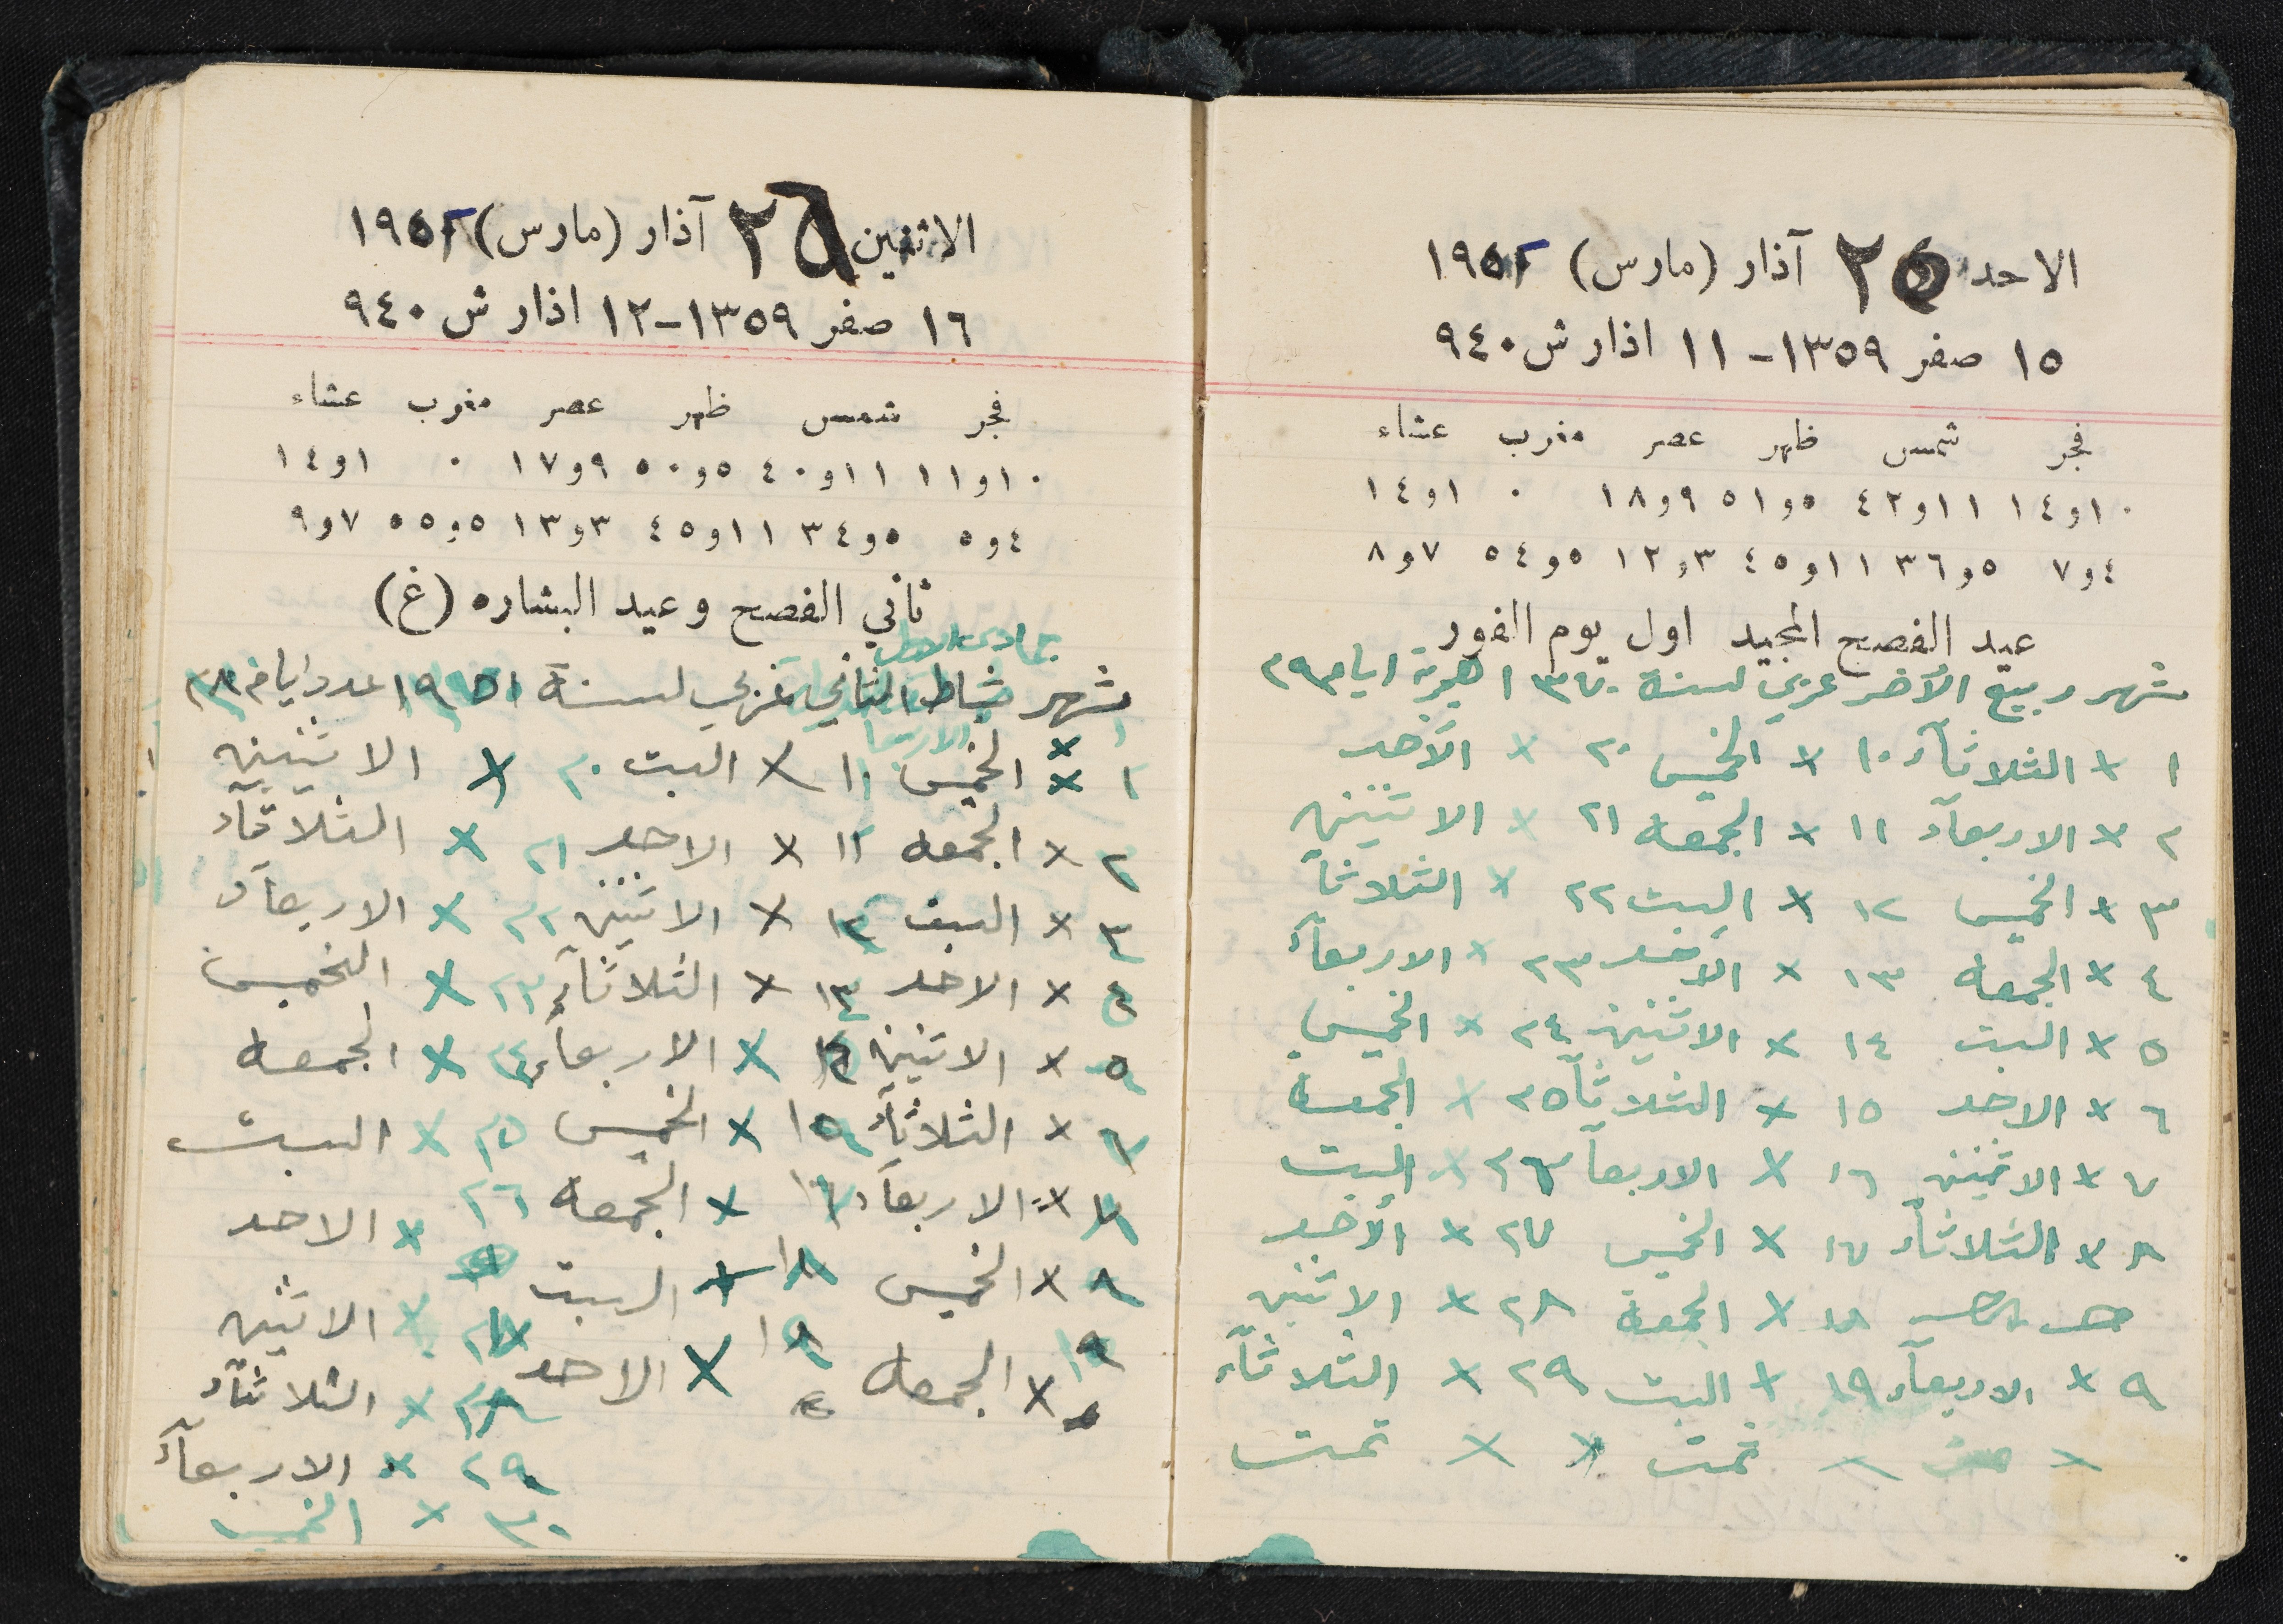 الاحد ٢٥ آذار (مارس) ١٩٥٢
١٥ صفر ١٣٥٩-١١ اذار ش ٩٤٠
فجر شمس ظهر عصر مغرب عشاء
١٠و١٤ ١١و٤٢ ٥و٥١ ٩و١٨ ٠ ١و١٤
٤و٧ ٥و٣٦ ١١و٤٥ ٣و١٢ ٥و٥٤ ٧و٨
عيد الفصح المجيد اول يوم الفور
شهر ربيع الآخر عربي لسنة ١٣٧٠ هجرية ايام ٢٩
١ × الثلاثآء ١٠ × الخميس ٢٠ × الآحد
٢ × الاربعآء ١١ × الجمعه ٢١ × الاثنين
٣ × الخميس ١٢ × السبت ٢٢ × الثلاثآ
٤ × الجمعه ١٣ × الآحد ٢٣ × الاربعآء
٥ × السبت ١٤ × الاثنين ٢٤ × الخميس
٦ × الاحد ١٥ × الثلاثآ ٢٥ × الجمعة
٧ × الاثنين ١٦ × الاربعآ ٢٦ × السبت
٨ × الثلاثآء ١٧ × الخميس ٢٧ × الآحد
١٨ × الجمعة ٢٨ × الاثنين
٩ × الاربعآء ١٩ × السبت ٢٩ × الثلاثآء
× × تمت × × تمت
الاثنين ٢٦ آذار (مارس) ١٩٥٢
١٦ صفر ١٣٥٩-١٢ اذار ش ٩٤٠
فجر شمس ظهر عصر مغرب عشاء
١٠و١١ ١١و٤٠ ٥و٥٠ ٩و١٧ ٠ ١و١٤
٤و٥ ٥و٣٤ ١١و٤٥ ٣و١٣ ٥و٥٥ ٧و٩
ثاني الفصح وعيد البشاره (غ)
جمادى الاول
شهر شباط الثاني غربي لسنة ١٩٥١ عدد ايام ٢٨
الاربعا
١ × الخميس ١١ × السبت ٢٠ × الاثنين
٢ × الجمعه ١٢ × الاحد ٢١ × الثلاثآء
٣ × السبت ١٣ × الاثنين ٢٢ × الاربعآء
٤ × الاحد ١٣ × الثلاثآء ٢٣ × الخميس
٥ × الاثنين × الاربعآء ٢٤ × الجمعه
٦ × الثلاثآء ١٥ × الخميس ٢٥ × السبت
٧ × الاربعآء ١٦ × الجمعه ٢٦ × الاحد
٨ × الخميس ١٨ × السبت × الاثنين
٩ × الجمعه ١٩ × الاحد ٢٨ × الثلاثآء
٢٩ × الاربعآء
٣٠ × الخميس